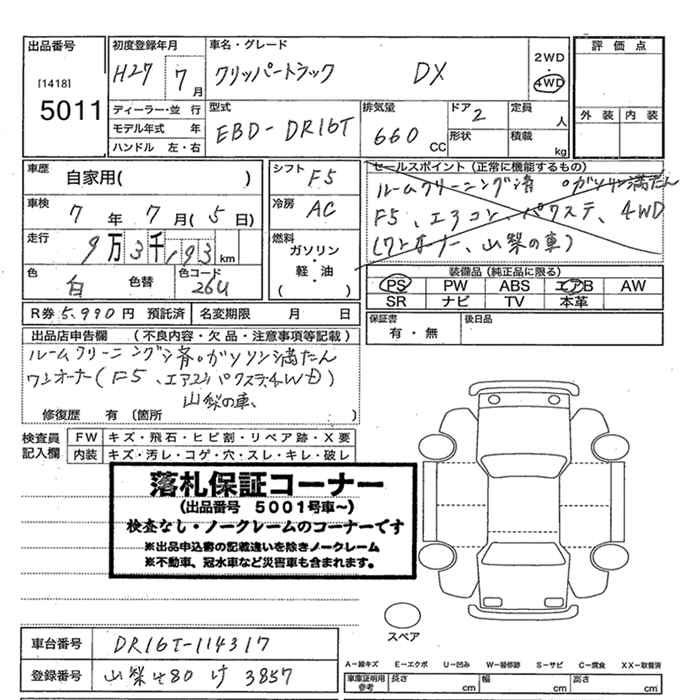 出品番号 初度登録年月 車名・グレード 評価点
[1418] H27 7月 クリッパートラック DX 2WD・4WD
5011 ディーラー・並 行 型式 排気量 ドア 定員 外装 内装
モデル年式 年 EBD-DR16T 660 CC 2 人
ハンドル 左・右 形状 積載 kg
車歴 自家用( ) シフト F5 セールスポイント(正常に機能するもの)
車検 7年 7月(5日) 冷房 AC ルームクリーニング済 。ガソリン満たん
走行 9万3千,193km 燃料 F5、エアコン、パワステ、4WD
ガソリン・軽・油 (ワンオーナー、山梨の車)
色 白 色替 色コード 26U ( ) 装備品(純正品に限る)
PS PW ABS エアB AW
SR ナビ TV 本革
R券 5,990円 預託済 名変期限 月 日 保証書 有・無 後日品
出品店申告欄 (不良内容・欠品・注意事項等記載)
ルームクリーニング済。ガソリン満たん
ワンオーナー(F5、エアコンパワステ、4WD)
山梨の車、
修復歴 有(箇所 )
検査員記入欄 FW キズ・飛石・ヒビ割・リペア跡・X要
内装 キズ・汚レ・コゲ・穴・スレ・キレ・破レ
落札保証コーナー
(出品番号 5001号車~)
検査なし・ノークレームのコーナーです
※出品申込書の記載違いを除きノークレーム
※不動車、冠水車など災害車も含まれます。
スペア
車台番号 DR16T-114317
A-線キズ E-エクボ U-凹み W-補修跡 S-サビ C-腐食 XX-取替済
登録番号 山梨 480 け 3857 車庫証明用参考 長さ cm 幅 cm 高さ cm